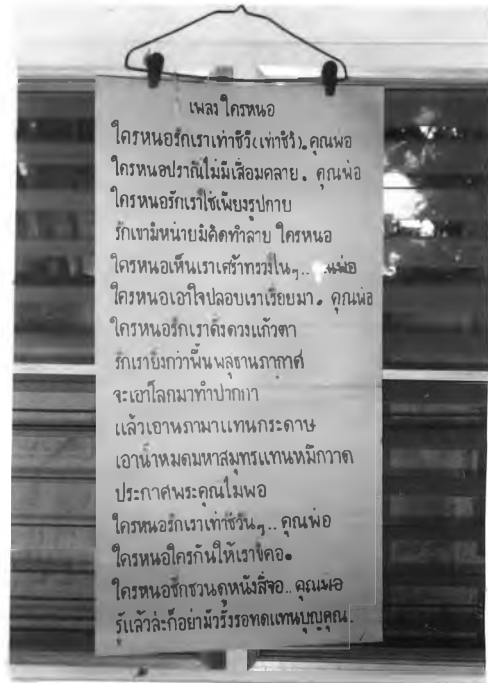 เพลง ใครหนอ
ใครหนอรักเราเท่าชีวี(เท่าชีวี). คุณพ่อ
ใครหนอปราณีไม่มีเสื่อมคลาย. คุณพ่อ
ใครหนอรักเราใช่เพียงรูปกาย
รักเขามิหน่ายมิคิดทำลาย ใครหนอ
ใครหนอเห็นเราเศร้าทรวงใน ๆ.. พ่อ
ใครหนอเอาใจปลอบเราเรื่อยมา. คุณพ่อ
ใครหนอรักเราดั่งดวงแก้วตา
รักเรายิ่งกว่าพื้นพสุธานภากาศ
จะเอาโลกมาทำปากกา
แล้วเอานภามาแทนกระดาษ
เอาน้ำหมดมหาสมุทรแทนหมึกวาด
ประกาศพระคุณไม่พอ
ใครหนอรักเราเท่าชีวัน ๆ.. คุณพ่อ
ใครหนอใครกันให้เราขี่คอ.
ใครหนอชักชวนดูหนังสี่จอ.. คุณพ่อ
รู้แล้วล่ะก็อย่ามัวรั้งรอทดแทนบุญคุณ.